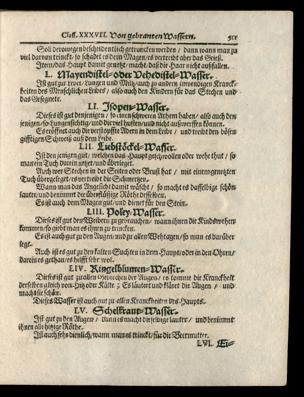 Class. XXXVII. Von gebranten Wassern. 511
Soll derowegen bescheidentlich getruncken werden / dann wann man zu
viel darvon trinckt / so schadet es dem Magen / es vertreibt aber das Grieß.
Item / das Haupt damit genetzt / macht / daß die Haar nicht außfallen.
L. Mayendistel- oder Vehedistel-Wasser.
Ist gut zur Leber / Lungen und Miltz / auch zu andern inwendigen Kranck-
heiten des Menschlichen Leibes / also auch den Kindern für das Stechen und
das Gesegnete.
LI. Isopen-Wasser.
Dieses ist gut denjenigen / so einen schweren Athem haben / also auch den
jenigen / so Lungensüchtig / und die viel husten / und nichts außwerffen können.
Es eröffnet auch die verstopffte Adern in dem Leibe / und treibt den bösen
gifftigen Schweiß auß dem Leibe.
LII. Liebstöckel-Wasser.
Ist den jenigen gut / welchen das Haupt geschwollen oder wehe thut / so
man ein Tuch darinn netzt / und überlegt.
Auch wer Stechen in der Seiten oder Brust hat / mit eingenetzten
Tuch übergelegt / es vertreibt die Schmertzen.
Wann man das Angesicht damit wäscht / so macht es dasselbige schön
lauter / und benimmt die überflüssige Röthe desselben.
Es ist auch dem Magen gut / und dienet für den Stein.
LIII. Poley-Wasser.
Dieses ist gut den Weibern zu gebrauchen / wann ihnen die Kindswehen
kommen / so giebt man es ihnen zu trincken.
Es ist auch gut zu den Augen / und zu allen Wehtagen / so man es darüber
legt.
Auch ist es gut zu den kalten Suchten in dem Haupt / oder in den Ohren /
darein es gethan / es heilet sehr wol.
LIV. Ringelblumen-Wasser.
Dieses ist gut zu allen Gebrechen der Augen / es komme die Kranckheit
derselben gleich von Hitz oder Kälte / Es läutert und kläret die Augen / und
macht sie schön.
Dieses Wasser ist auch gut zu allen Kranckheiten des Haupts.
LV. Schelkraut-Wasser.
Ist gut zu den Augen / dann es macht dieselbige lauter / und benimmt
ihnen alle hitzige Röthe.
Ist auch sehr dienlich / wann man es trinckt / für die Beermutter.
LVI.